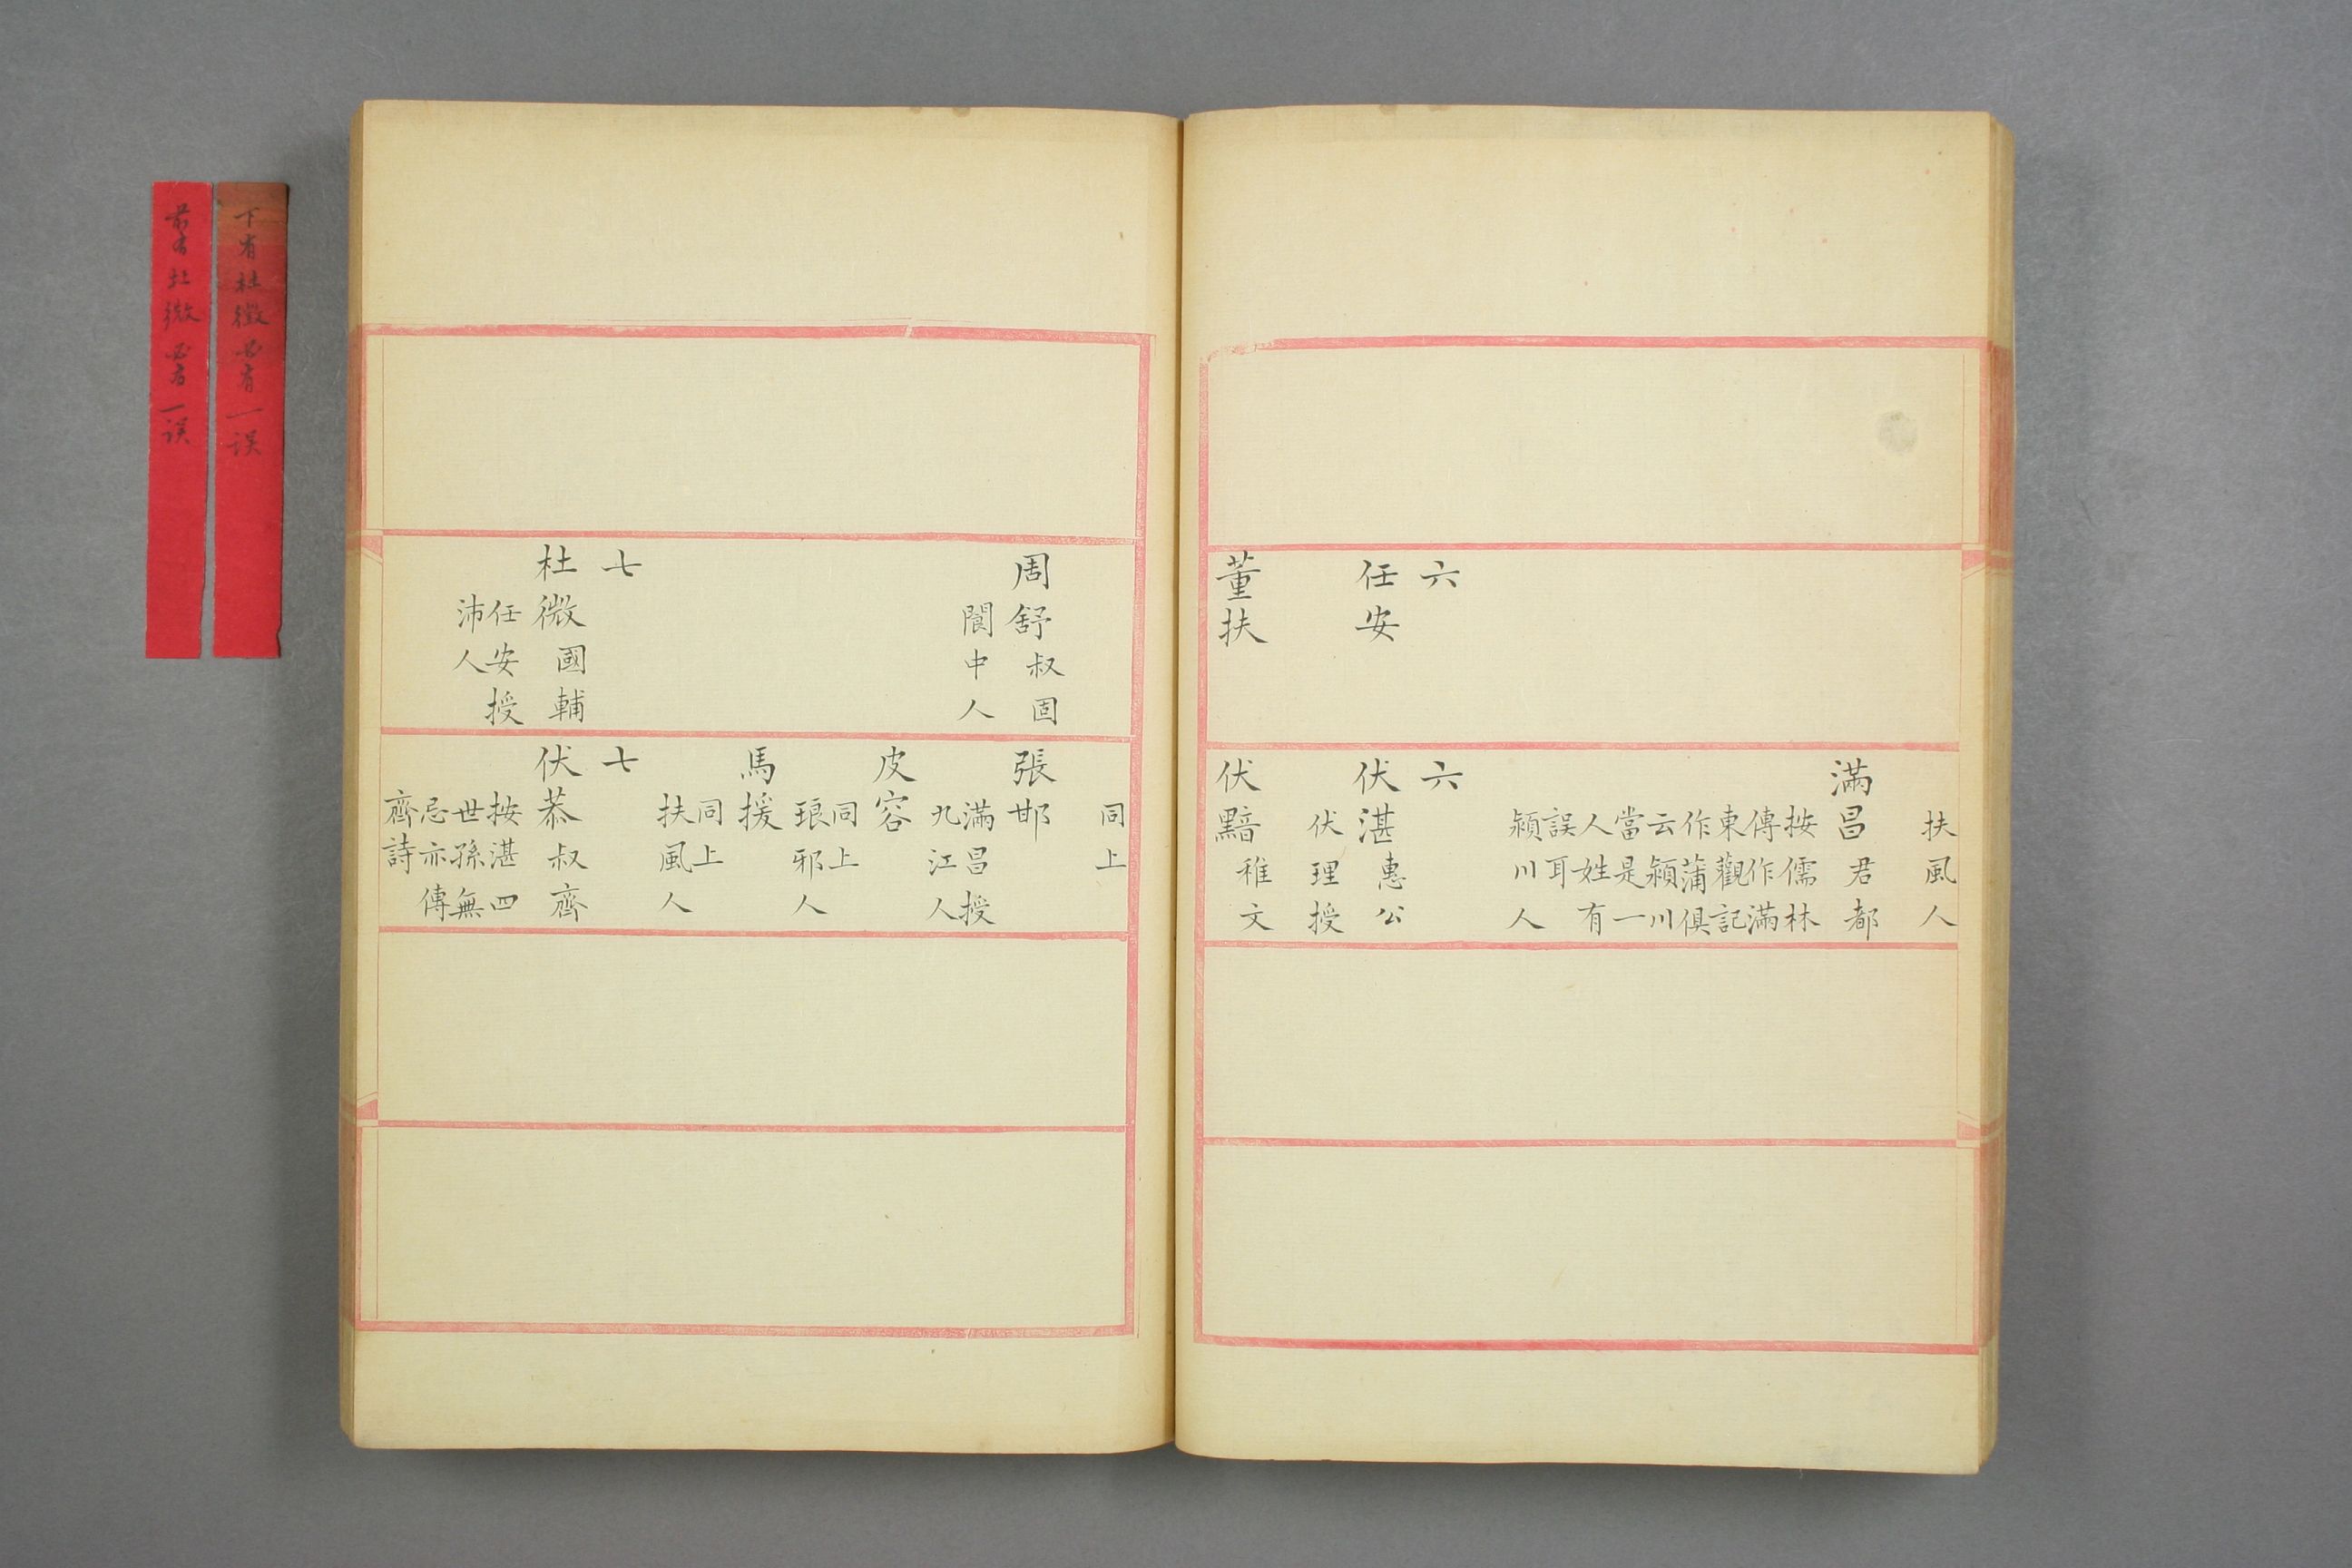 六
任安
董扶
扶風人
滿昌君都
按儒林
傳作滿
東觀記
作蒲俱
云潁川
當是一
人姓有
誤耳
潁川人
六
伏湛惠公
伏理授
伏黯稚文
周舒叔固
閬中人
七
杜微國輔
任安授
沛人
同上
張邯
滿昌授
九江人
皮容
同上
琅邪人
馬援
同上
扶風人
七
伏恭叔齊
按湛四
世孫無
忌亦傳
齊詩
下有杜微必有一误
前有杜微必有一误